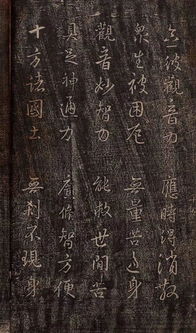 念彼觀音力 應時得消散
眾生被困厄 無量苦逼身
觀音妙智力 能救世間苦
具足神通力 廣修智方便
十方諸國土 無刹不現身